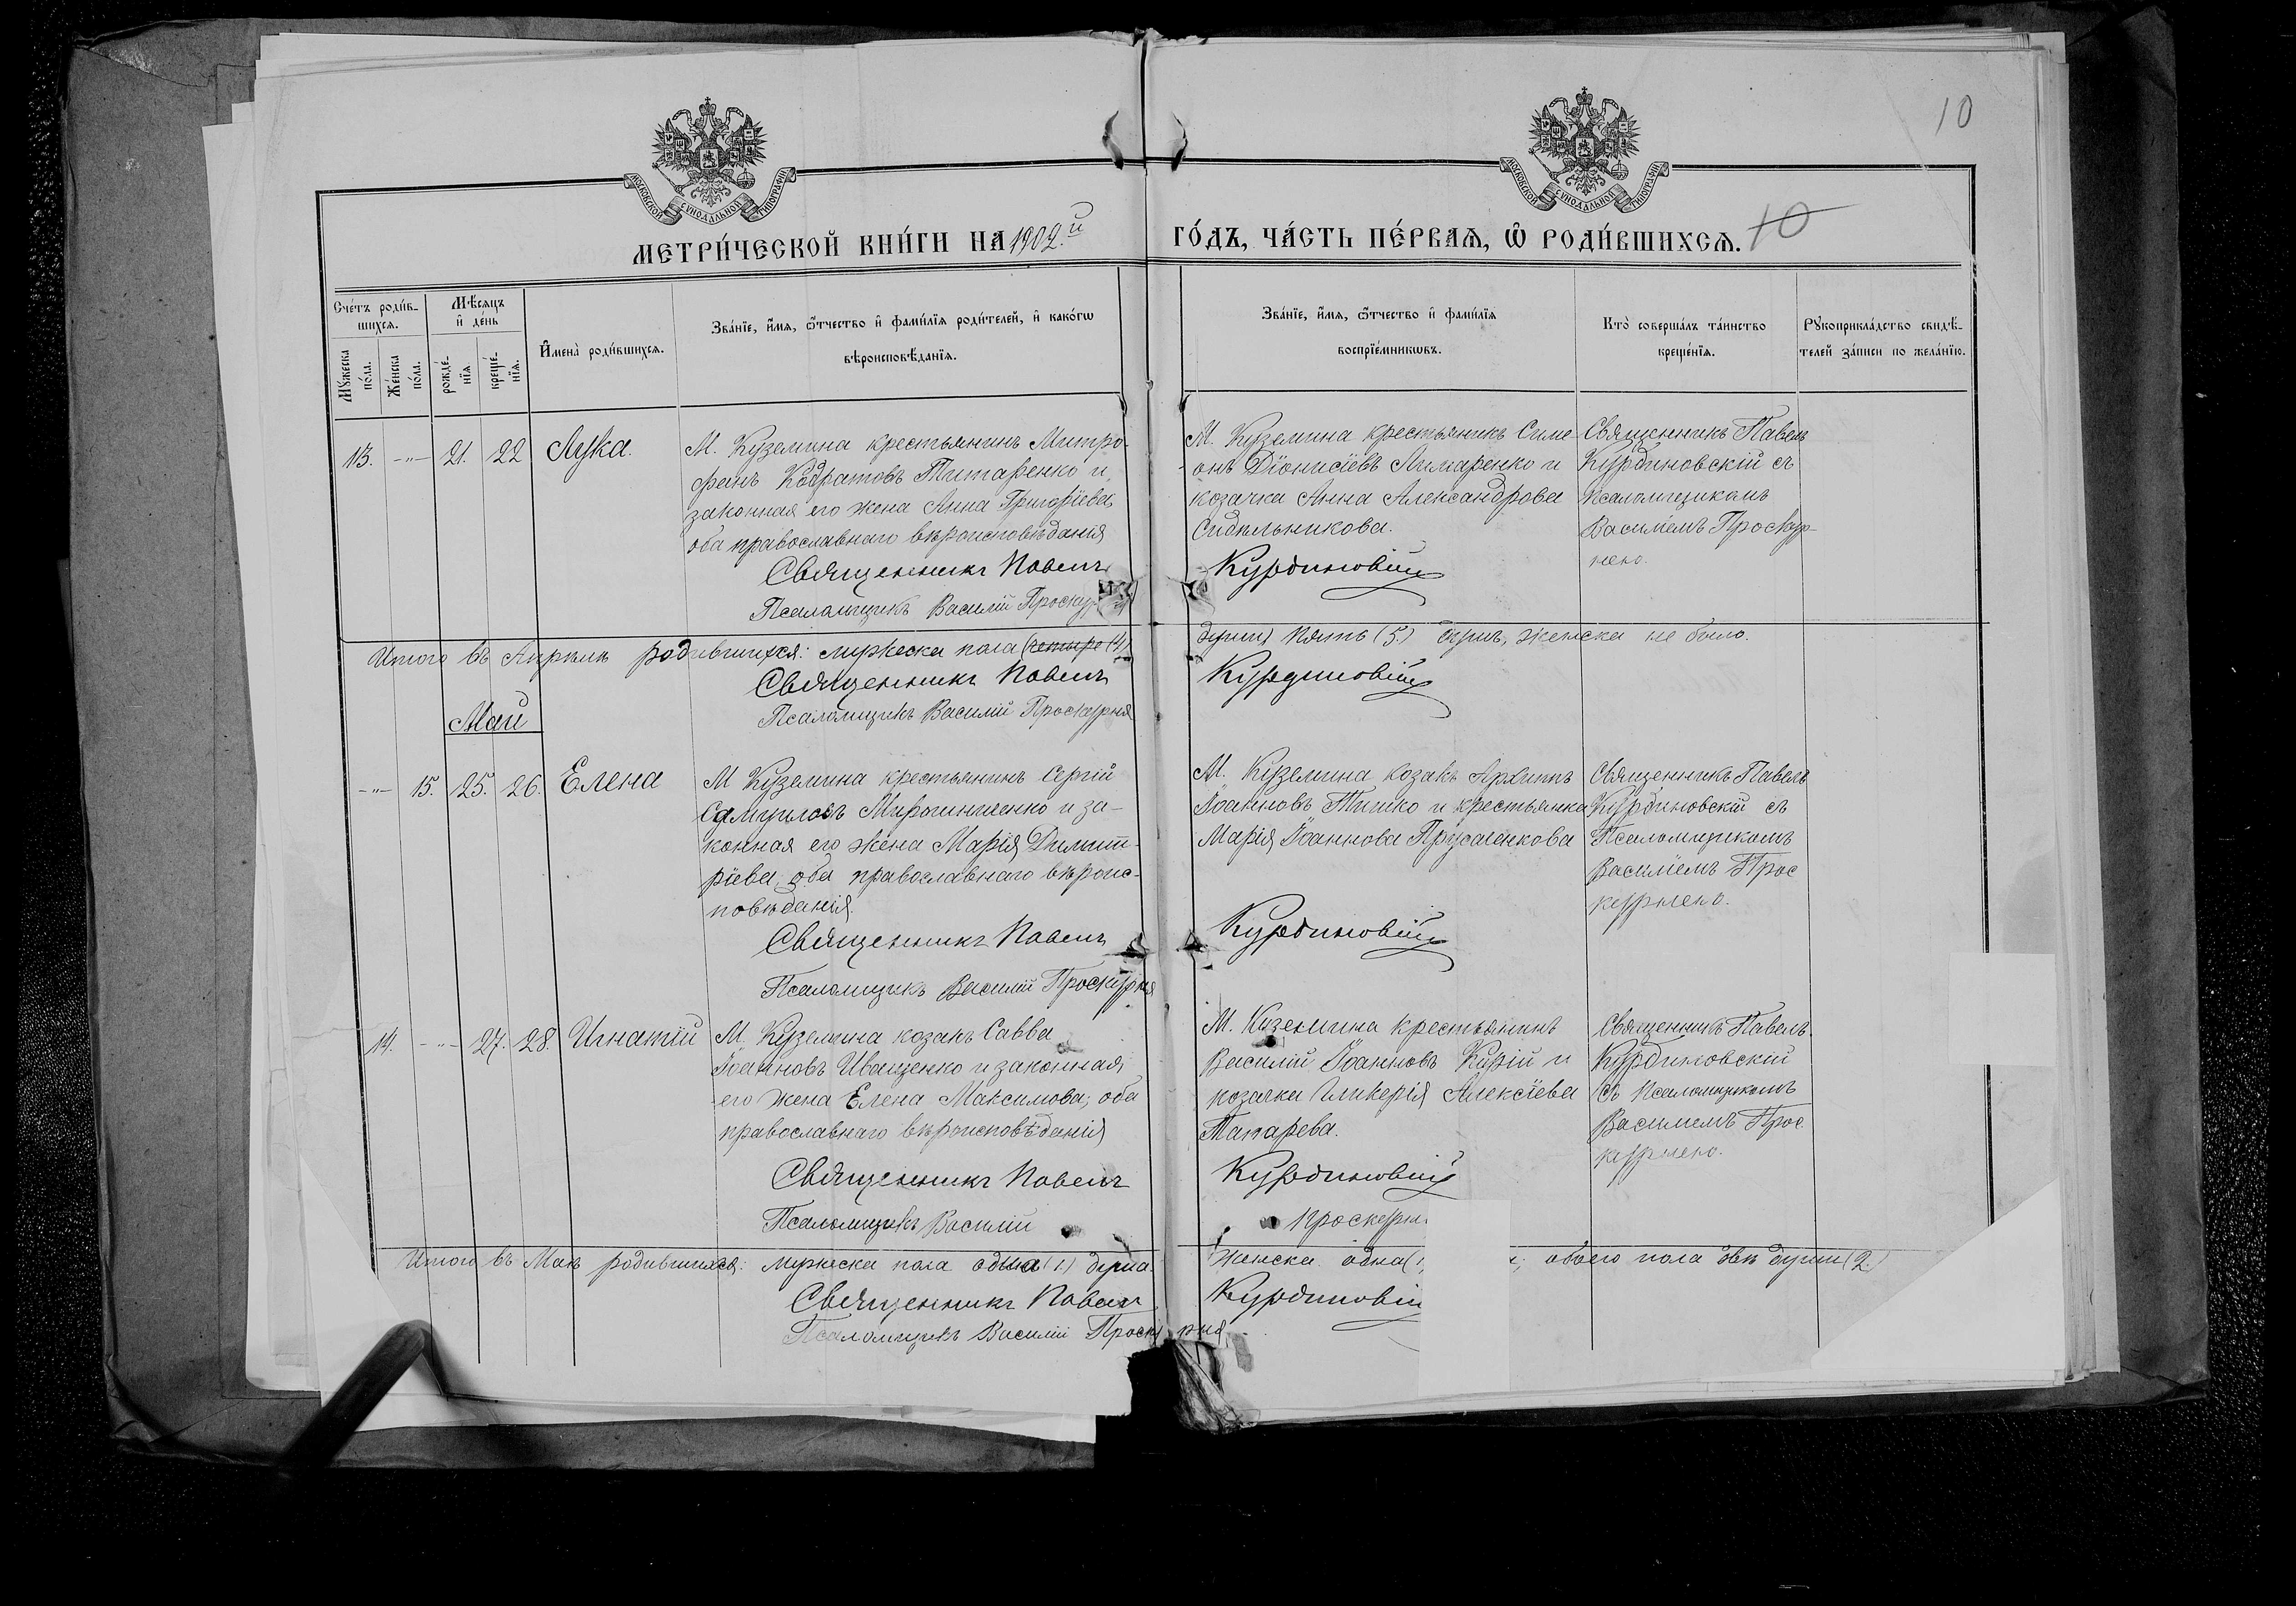 10
МОСКОВСКОЙ СѴНОДАЛЬНОЙ ТИПОГРАФІИ
МОСКОВСКОЙ СѴНОДАЛЬНОЙ ТИПОГРАФІИ
МЕТРИ́ЧЕСКОЙ КНИ́ГИ НА 1902.й ГО́ДЪ, ЧА́СТЬ ПЕ́РВАѦ, Ѽ РОДИ́ВШИХСѦ. 10
Сче́тъ роди́в-
шихсѧ.
Мѣ́сѧцъ
и҆ де́нь
Мꙋ́жеска
по́ла.
Же́нска
по́ла.
рожде́-
нїѧ
креще́-
нїѧ.
И҆мена̀ роди́вшихсѧ.
Зва́нїе, и҆́мѧ, ѻ҆́тчество и҆ фами́лїѧ роди́телей, и҆ како́гѡ
вѣроисповѣ́данїѧ.
Зва́нїе, и҆́мѧ, ѻ҆́тчество и҆ фами́лїѧ
воспрїе́мникѡвъ.
Кто̀ соверша́лъ та́инство
креще́нїѧ.
Рꙋкоприкла́дство свидѣ́-
телей за́писи по жела́нїю.
13. -"- 21. 22 Лука.
М. Куземина крестьянинъ Митро-
фанъ Кодратовъ Титаренко и
законная его жена Анна Григорїева,
оба православнаго вѣроисповѣданія
Священникъ Павелъ
Псаломщикъ Василій
М. Куземина крестьянинъ Симе-
онъ Dїонисїевъ Лимаренко и
козачка Анна Александрова
Сидельникова.
Курдиновскій
Священникъ Павелъ
Курдиновскій съ
псаломщикомъ
Василїемъ Проскур-
нею.
Итого въ Апрѣлѣ родившихся: мужеска пола (четыре (4) душъ) пять (5) душъ, женска не было.
Священникъ Павелъ Курдиновскій
Псаломщикъ Василій Проскурня
Май
-"- 15. 25. 26. Елена
М Куземина крестьянинъ Сергій
Самуиловъ Мирошниченко и за-
конная его жена Марія Димит-
рїева, оба православнаго вѣроис-
повѣданія.
Священникъ Павелъ
Псаломщикъ Василій Проскурня
М. Куземина козакъ Архипъ
Іоанновъ Тишко и крестьянка
Марія Іоаннова
Курдиновскій
Священникъ Павелъ
Курдиновскій съ
Псаломщикомъ
Василїемъ Прос
курнею.
14. -"- 27. 28. Игнатій
М. Куземина козакъ Савва
Іоанновъ Иващенко и законная
его жена Елена Максимова, оба
православнаго вѣроисповѣданія
Священникъ Павелъ
Псаломщикъ Василій
М. Куземина крестьянинъ
Василій Іоанновъ Курій и
козачка Гликерія Алексїева
Тапарева.
Курдиновскій
Проскурн
Священникъ Павелъ
Курдиновскій
съ Псаломщикомъ
Василіемъ Прос
курнею.
Итого въ Маѣ родившихся: мужеска пола одна (1) душа. женска одна (1 обоего пола двѣ души (2.)
Священникъ Павелъ Курдиновскій
Псаломщикъ Василій Проскурня